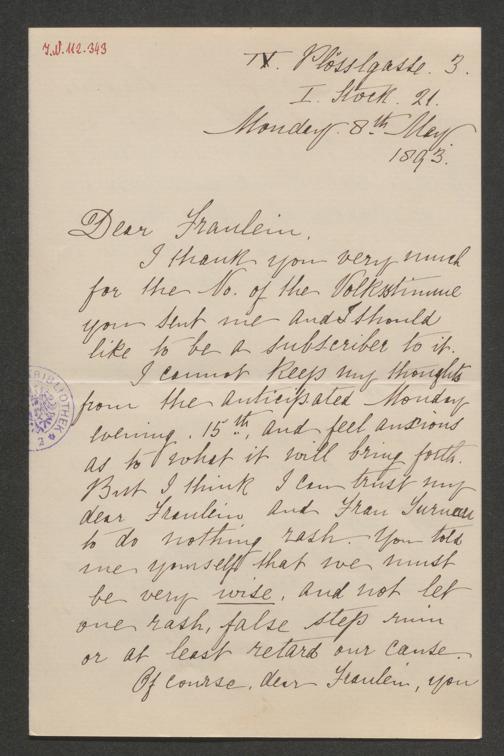 J.N. 112.343
IX. Plösslgasse. 3.
I. Stock. 21.
Monday. 8th May
1893.
Dear Fraulein,
I thank you very much
for the No. of the Volksstimme
you sent me and I should
like to be a subscriber to it.
I cannot keep my thoughts
from the anticipated Monday
evening. 15th, and feel anxious
as to what it will bring forth.
But I think I can trust my
dear Fraulein and Frau
to do nothing rash. You told
me yourself that we must
be very wise, and not let
one rash, false step ruin
or at least retard our cause.
Of course, dear Fraulein, you
BIBLIOTHEK